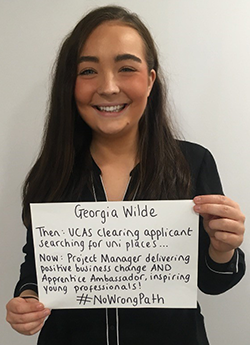 Georgia Wilde
Then: UCAS clearing applicant
searching for uni places...
Now: Project Manager delivering
positive business change AND
Apprentice Ambassador, inspiring
young professionals!
#NoWrongPath